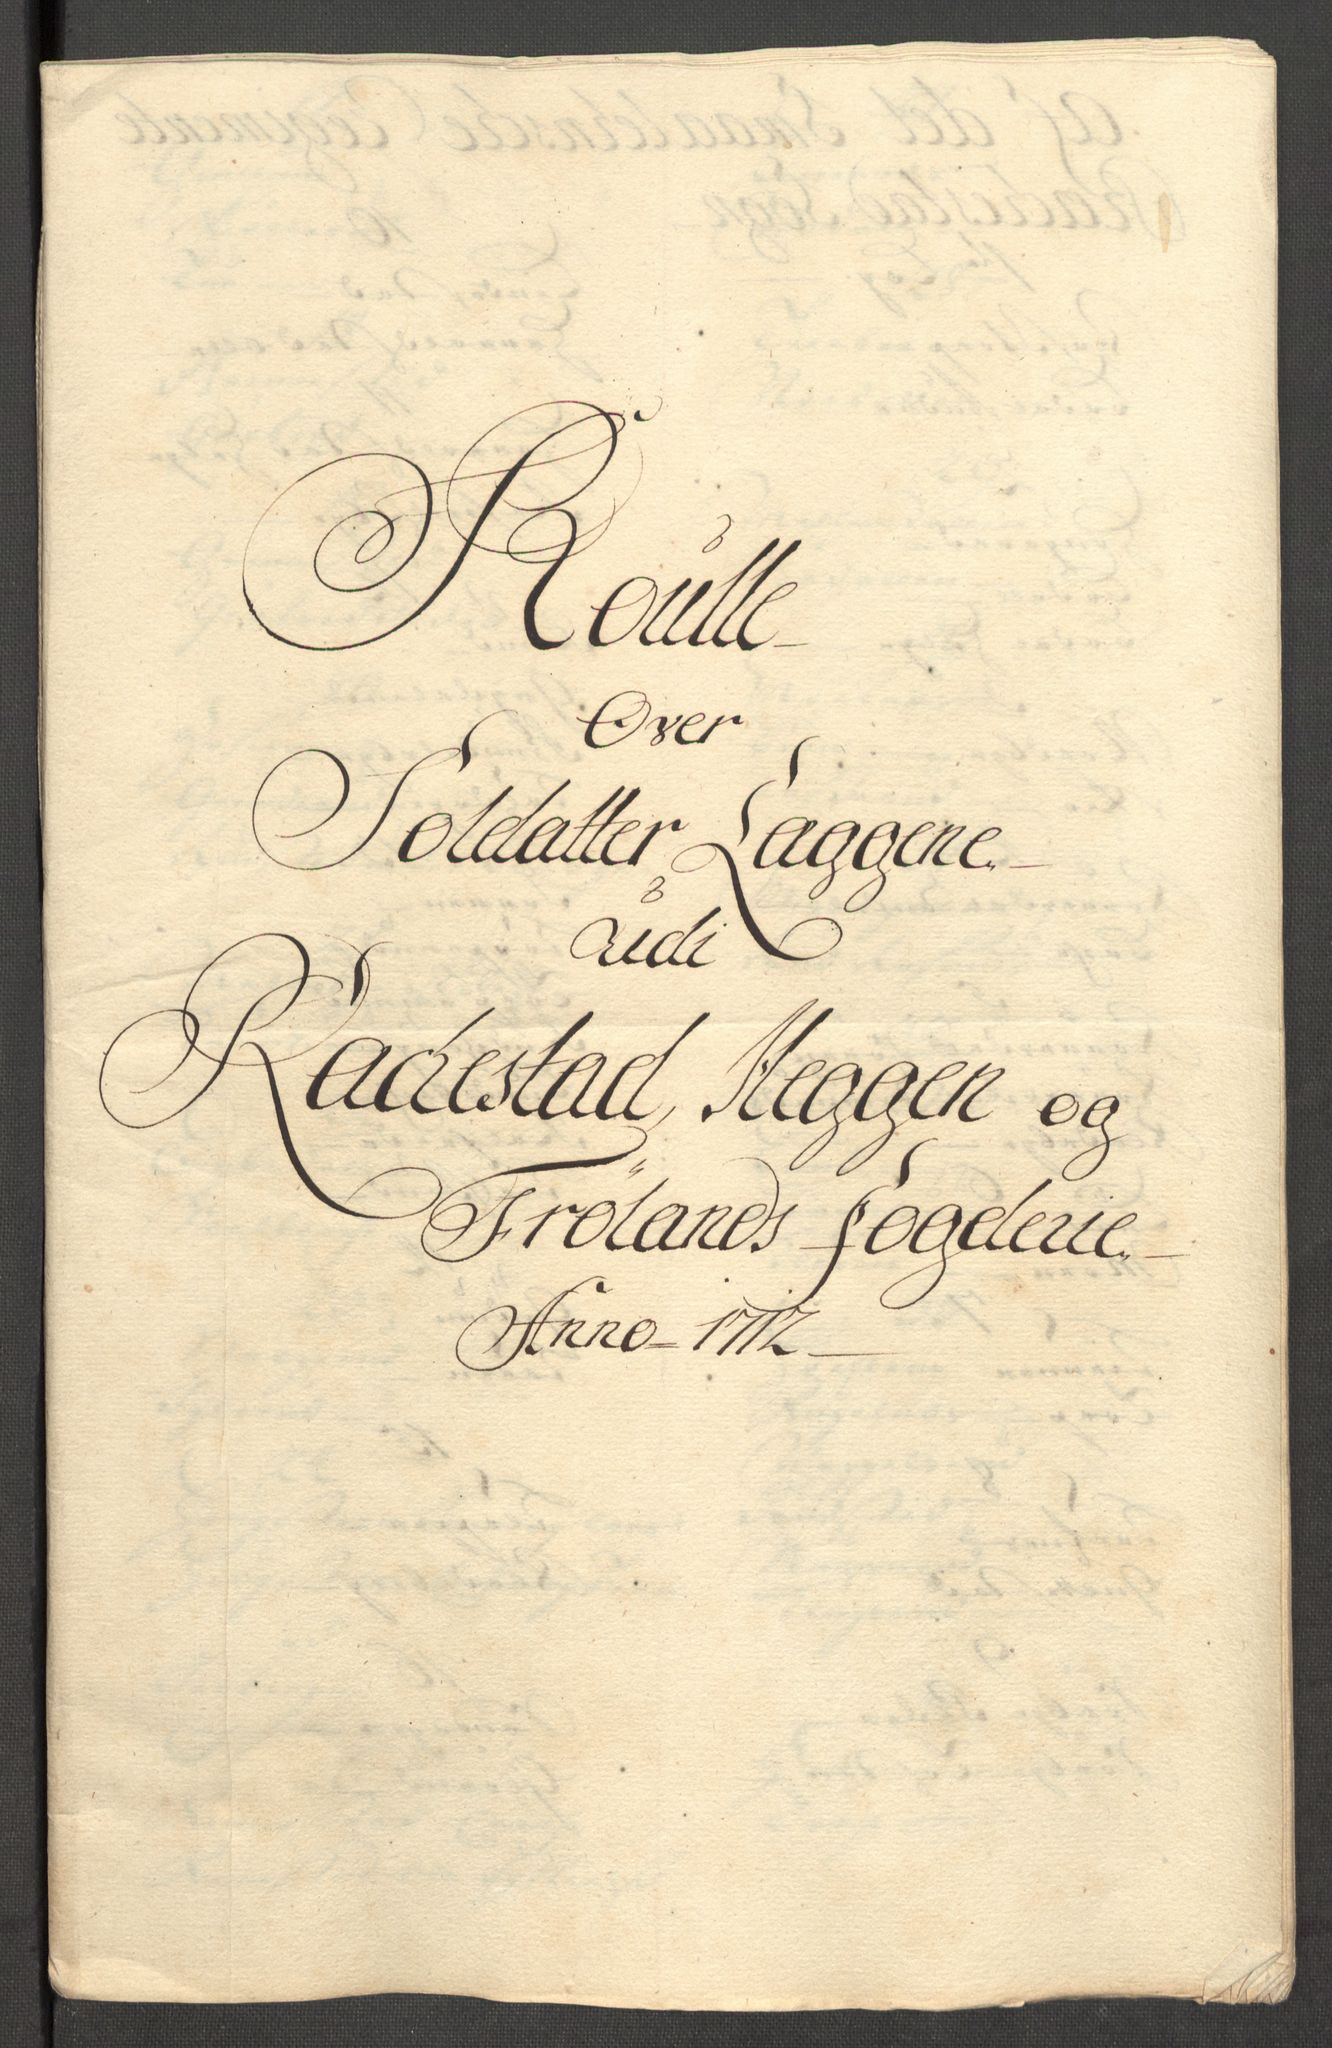 Roulle
Over
Soldatter Læggene.
udi
Rachestad, Heggen og
Frölands fogderie.
Anno 1712